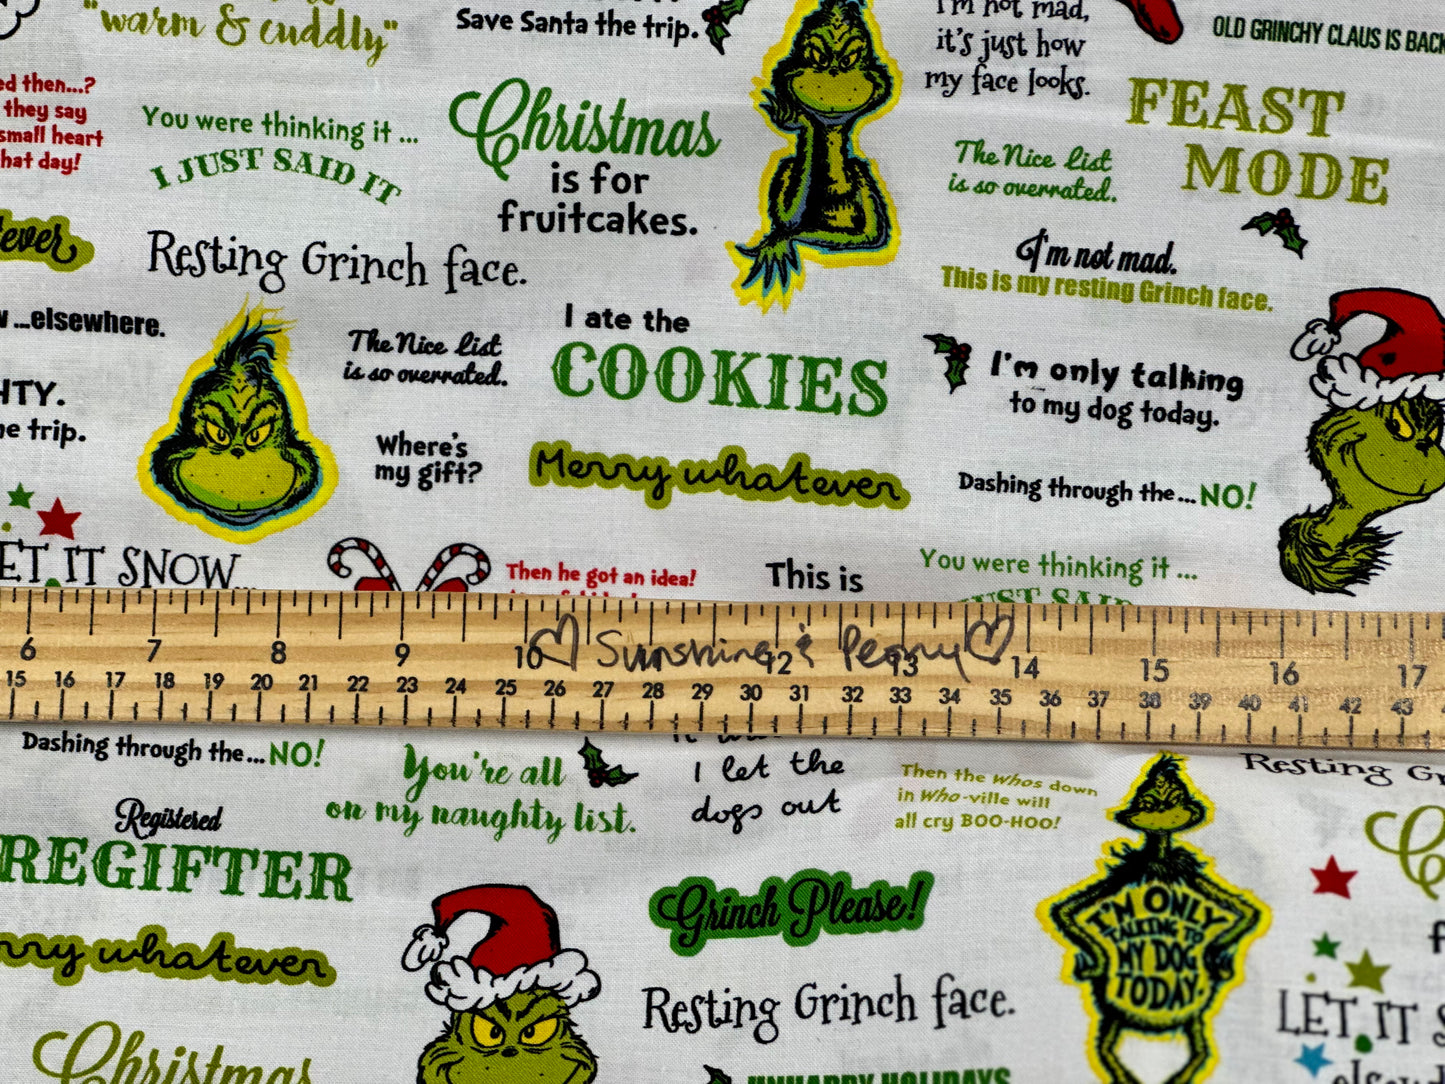 "warm & cuddly"
Save Santa the trip.
I'm not mad,
it's just how
my face looks.
OLD GRINCHY CLAUS IS BACK
FEAST
MODE
ed then...?
they say
small heart
hat day!
You were thinking it ...
I JUST SAID IT
Christmas
is for
fruitcakes.
The Nice List
is so overrated.
ever
Resting Grinch face.
I'm not mad.
This is my resting Grinch face.
...elsewhere.
The Nice List
is so overrated.
I ate the
COOKIES
I'm only talking
to my dog today.
HTY.
e trip.
Where's
my gift?
Merry whatever
Dashing through the... NO!
LET IT SNOW...
Then he got an idea!
This is
You were thinking it ...
JUST SAID
♡ Sunshine & Peony ♡
6 7 8 9 10 12 13 14 15 16 17
15 16 17 18 19 20 21 22 23 24 25 26 27 28 29 30 31 32 33 34 35 36 37 38 39 40 41 42 43
Dashing through the... NO!
You're all
on my naughty list.
I let the
dogs out
Then the Whos down
in Who-ville will
all cry BOO-HOO!
Resting Gr
Registered
REGIFTER
Grinch Please!
I'M ONLY
TALKING TO
MY DOG
TODAY.
rry whatever
Resting Grinch face.
LET IT S
Christmas
UNHAPPY HOLIDAYS
elsew